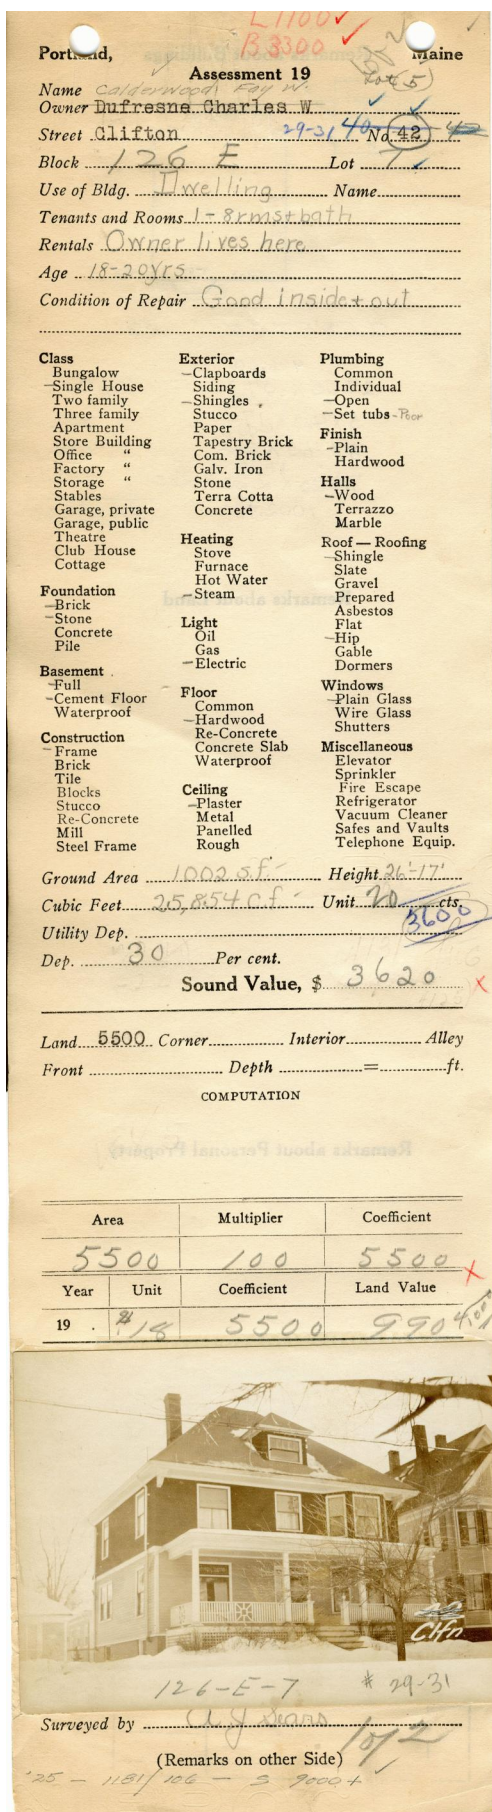 L1100 ✓
B 3300 ✓
Portland, Maine
Assessment 19
Lot (5)
Name Calderwood, Fay W.
Owner Dufresne Charles W
Street Clifton 29-31 40 No. 42 42
Block 126 E Lot 7
Use of Bldg. Dwelling Name
Tenants and Rooms 1-8rms+bath
Rentals Owner lives here
Age 18-20yrs
Condition of Repair Good inside + out
Class
Bungalow
-Single House
Two family
Three family
Apartment
Store Building
Office "
Factory "
Storage "
Stables
Garage, private
Garage, public
Theatre
Club House
Cottage
Foundation
-Brick
-Stone
Concrete
Pile
Basement
-Full
-Cement Floor
Waterproof
Construction
-Frame
Brick
Tile
Blocks
Stucco
Re-Concrete
Mill
Steel Frame
Exterior
-Clapboards
Siding
-Shingles
Stucco
Paper
Tapestry Brick
Com. Brick
Galv. Iron
Stone
Terra Cotta
Concrete
Heating
Stove
Furnace
Hot Water
-Steam
Light
Oil
Gas
-Electric
Floor
Common
-Hardwood
Re-Concrete
Concrete Slab
Waterproof
Ceiling
-Plaster
Metal
Panelled
Rough
Plumbing
Common
Individual
-Open
-Set tubs -Poor
Finish
-Plain
Hardwood
Halls
-Wood
Terrazzo
Marble
Roof — Roofing
-Shingle
Slate
Gravel
Prepared
Asbestos
Flat
-Hip
Gable
Dormers
Windows
-Plain Glass
Wire Glass
Shutters
Miscellaneous
Elevator
Sprinkler
Fire Escape
Refrigerator
Vacuum Cleaner
Safes and Vaults
Telephone Equip.
Ground Area 1002 s.f.- Height 26'-17'
Cubic Feet 25,854 c.f- Unit 20 cts.
3600
Utility Dep.
Dep. 30 Per cent.
Sound Value, $ 3620 x
Land 5500 Corner Interior Alley
Front Depth = ft.
COMPUTATION
Remarks about Personal Property
Area Multiplier Coefficient
5500 100 5500 x
Year Unit Coefficient Land Value
19 . 18 5500 990
42
Clfn
126-E-7 # 29-31
Surveyed by A J Sears
1 of 2
(Remarks on other Side)
'25 - 1181/106 - S 9000+ ✓